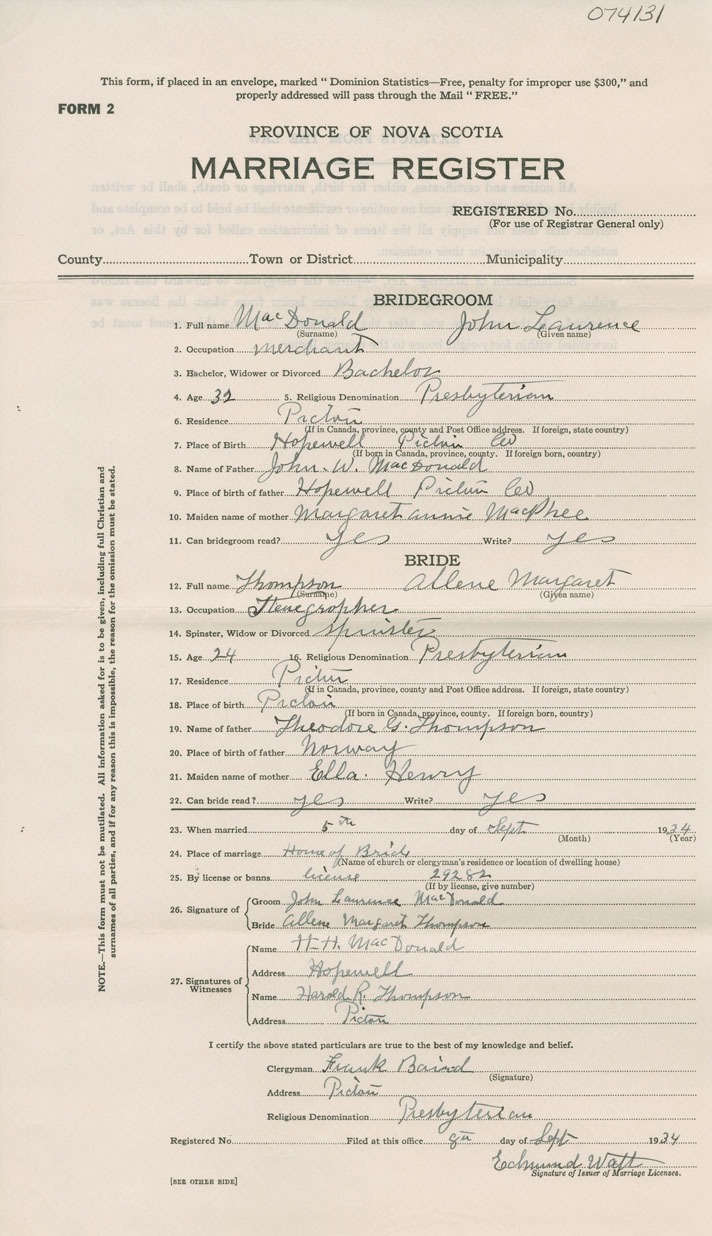 074131
This form, if placed in an envelope, marked "Dominion Statistics—Free, penalty for improper use $300," and
properly addressed will pass through the Mail "FREE."
FORM 2
PROVINCE OF NOVA SCOTIA
MARRIAGE REGISTER
REGISTERED No.
(For use of Registrar General only)
County Town or District Municipality
BRIDEGROOM
1. Full name MacDonald John Laurence
(Surname) (Given name)
2. Occupation merchant
3. Bachelor, Widower or Divorced Bachelor
4. Age 32 5. Religious Denomination Presbyterian
6. Residence Pictou
(If in Canada, province, county and Post Office address. If foreign, state country)
7. Place of Birth Hopewell Pictou Co
(If born in Canada, province, county. If foreign born, country)
8. Name of Father John W. MacDonald
9. Place of birth of father Hopewell Pictou Co
10. Maiden name of mother Margaret annie MacPhee
11. Can bridegroom read? yes Write? yes
BRIDE
12. Full name Thompson Allene Margaret
(Surname) (Given name)
13. Occupation Stenegropher
14. Spinster, Widow or Divorced Spinster
15. Age 24 16. Religious Denomination Presbyterian
17. Residence Pictou
(If in Canada, province, county and Post Office address. If foreign, state country)
18. Place of birth Pictou
(If born in Canada, province, county. If foreign born, country)
19. Name of father Theodore G. Thompson
20. Place of birth of father Norway
21. Maiden name of mother Ella Henry
22. Can bride read? yes Write? yes
23. When married 5th day of Sept 1934
(Month) (Year)
24. Place of marriage House of Bride
(Name of church or clergyman's residence or location of dwelling house)
25. By license or banns license 29282
(If by license, give number)
26. Signature of
Groom John Laurence MacDonald
Bride Allene Margaret Thompson
27. Signatures of Witnesses
Name H. H. MacDonald
Address Hopewell
Name Harold R. Thompson
Address Pictou
I certify the above stated particulars are true to the best of my knowledge and belief.
Clergyman Frank Baird
(Signature)
Address Pictou
Religious Denomination Presbyterian
Registered No. Filed at this office 8th day of Sept 1934
Edmund Watt
Signature of Issuer of Marriage Licenses.
[SEE OTHER SIDE]
NOTE.—This form must not be mutilated. All information asked for is to be given, including full Christian and
surnames of all parties, and if for any reason this is impossible, the reason for the omission must be stated.